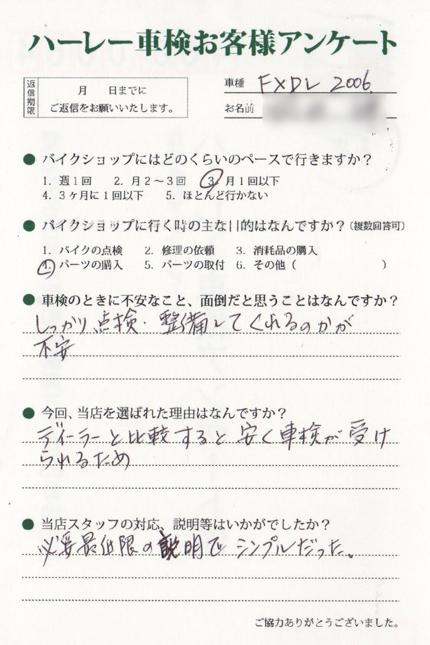 ハーレー車検お客様アンケート
返信期限
月 日までに
ご返信をお願いいたします。
車種 FXDL 2006
お名前
● バイクショップにはどのくらいのペースで行きますか？
1. 週1回 2. 月2〜3回 3. 月1回以下
4. 3ヶ月に1回以下 5. ほとんど行かない
● バイクショップに行く時の主な目的はなんですか？（複数回答可）
1. バイクの点検 2. 修理の依頼 3. 消耗品の購入
4. パーツの購入 5. パーツの取付 6. その他（ ）
● 車検のときに不安なこと、面倒だと思うことはなんですか？
しっかり点検・整備してくれるのかが
不安
● 今回、当店を選ばれた理由はなんですか？
ディーラーと比較すると安く車検が受け
られるため
● 当店スタッフの対応、説明等はいかがでしたか？
必要最低限の説明でシンプルだった。
ご協力ありがとうございました。